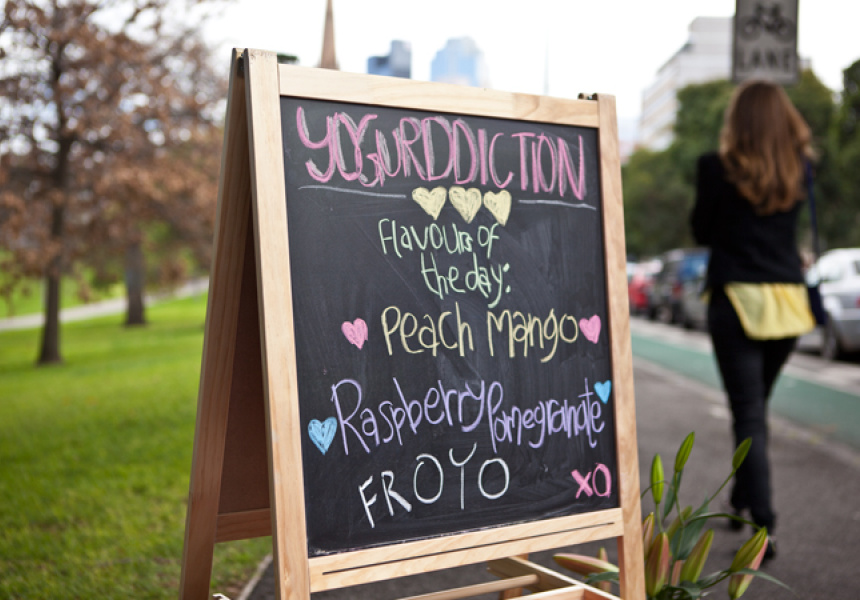 YOGURDDICTION
Flavours of
the day:
Peach Mango
Raspberry Pomegranate
FROYO XO
LANE